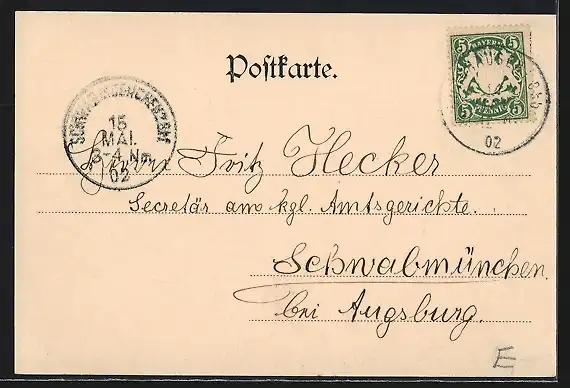 Postkarte.
5 BAYERN 5
5 PFENNIG 5
AUGS
02
SCHWABMUENCHEN
15
MAI.
3-4 Nm.
02
Herrn Fritz Hecker
Secretär am kgl. Amtsgerichte.
Schwabmünchen
bei Augsburg.
E